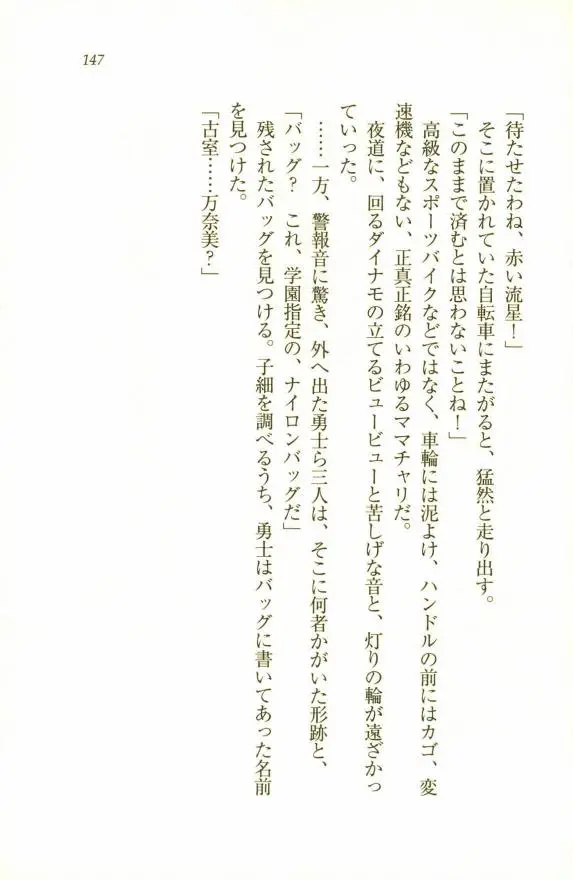 147
「待たせたわね、赤い流星！」
そこに置かれていた自転車にまたがると、猛然と走り出す。
「このままで済むとは思わないことね！」
高級なスポーツバイクなどではなく、車輪には泥よけ、ハンドルの前にはカゴ、変
速機などもない、正真正銘のいわゆるママチャリだ。
夜道に、回るダイナモの立てるビュービューと苦しげな音と、灯りの輪が遠ざかっ
ていった。
……一方、警報音に驚き、外へ出た勇士ら三人は、そこに何者かがいた形跡と、
「バッグ？　これ、学園指定の、ナイロンバッグだ」
残されたバッグを見つける。子細を調べるうち、勇士はバッグに書いてあった名前
を見つけた。
「古室……万奈美？」